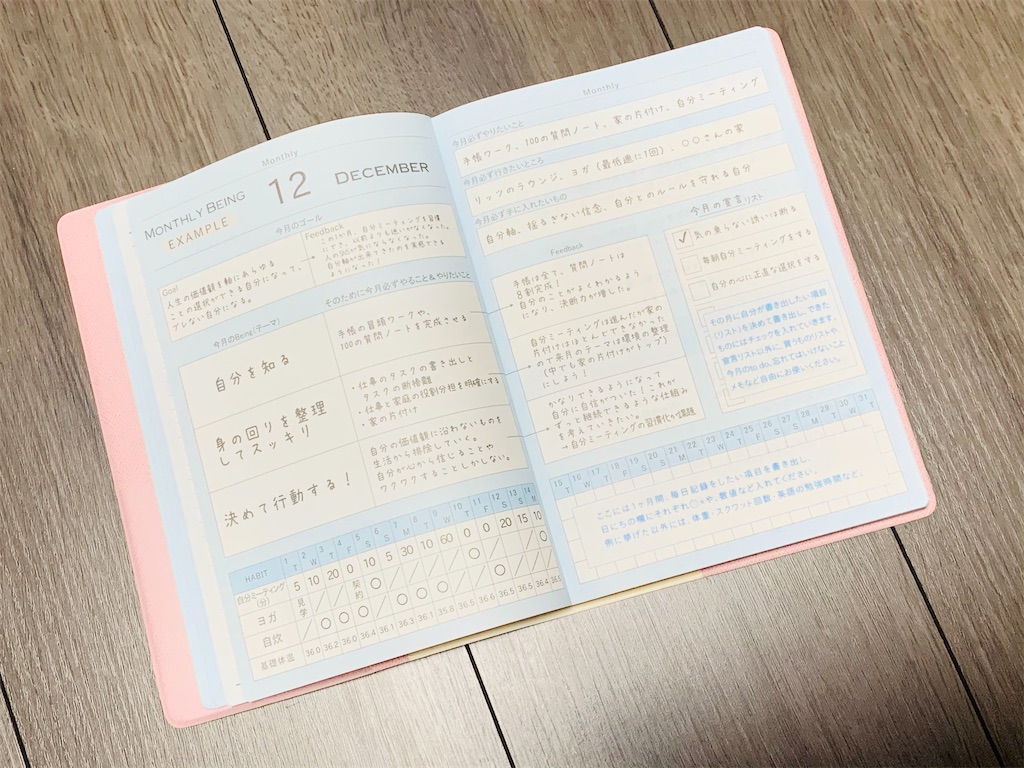 Monthly
MONTHLY BEING
12
DECEMBER
EXAMPLE
今月のゴール
Goal
人生の価値観を軸にあらゆる
ことの選択ができる自分になって、
ブレない自分になる。
Feedback
この1か月、自分ミーティングを習慣
人の
自分軸が出来てきたのを実感できる
ようになった!
今月のBeing(テーマ)
そのために今月必ずやること&やりたいこと
自分を知る
手帳の冒頭ワークや、
100の質問ノートを完成させる
身の回りを整理
してスッキリ
・仕事のタスクの書き出しと
タスクの断捨離
・仕事と家庭の役割分担を明確にする
・家の片付け
決めて行動する!
自分の価値観に沿わないものを
生活から排除していく。
自分が心から信じることや
ワクワクすることしかしない。
HABIT
1 2 3 4 5 6 7 8 9 10 11 12 13 14
T W T F S S M T W T F S S M
自分ミーティング(分)
5 10 20 0 10 5 30 10 60 0 0 20 15 10
ヨガ
見学
契約
自炊
基礎体温
36.0 36.2 36.0 36.4 36.1 36.3 36.1 35.8 36.5 36.6 36.5 36.4 36.5
Monthly
今月必ずやりたいこと
手帳ワーク、100の質問ノート、家の片付け、自分ミーティング
今月必ず行きたいところ
リッツのラウンジ、ヨガ (最低週に1回)、○○さんの家
今月必ず手に入れたいもの
自分軸、揺るぎない信念、自分とのルールを守れる自分
Feedback
手帳は全て、質問ノートは
8割完成!
自分のことがよくわかるよう
になり、決断力が増した。
自分ミーティングは進んだが家の
片付けはほとんどできなかった
ので来月のテーマは環境の整理
(中でも家の片付けがトップ)
にしよう!
かなりできるようになって
自分に自信がついた!これが
ずっと継続できるような仕組み
を考えていきたい。
→自分ミーティングの習慣化が課題
今月の宣言リスト
✓ 気の乗らない誘いは断る
毎朝自分ミーティングをする
自分の心に正直な選択をする
その月に自分が書き出したい項目
(リスト)を決めて書き出し、できた
ものにはチェックを入れていきます。
宣言リスト以外に、買うものリストや
今月のto do、忘れてはいけないこと
メモなど自由にお使いください。
15 16 17 18 19 20 21 22 23 24 25 26 27 28 29 30 31
T W T F S S M T W T F S S M T W T
ここには1ヶ月間、毎日記録をしたい項目を書き出し、
日にちの欄にそれぞれ○×や、数値など入れてください。
例に挙げた以外には、体重・スクワット回数・英語の勉強時間など。